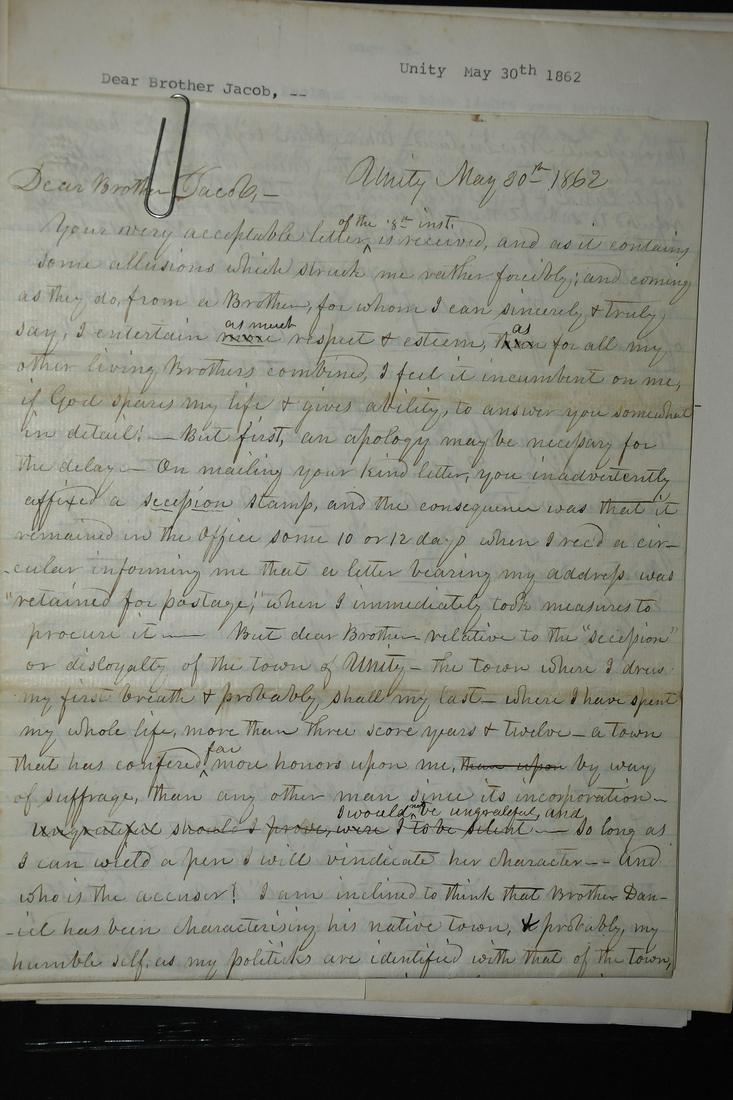 Unity May 30th 1862
Dear Brother Jacob, --
Unity May 30th 1862
Dear Brother Jacob, —
Your very acceptable letter of the 8th inst. is received, and as it contains
some allusions which struck me rather forcibly; and coming
as they do, from a Brother, for whom I can sincerely & truly
say, I entertain more as much respect & esteem, than as for all my
other living Brothers combined, I feel it incumbent on me,
if God spares my life & gives ability, to answer you somewhat
in detail! — But first, an apology may be necessary for
the delay — On mailing your kind letter, you inadvertently
affixed a secession stamp, and the consequence was that it
remained in the Office some 10 or 12 days when I rec'd a cir-
-cular informing me that a letter bearing my address was
"retained for postage," when I immediately took measures to
procure it — But dear Brother relative to the "secession"
or disloyalty of the town of Unity — the town where I drew
my first breath & probably shall my last — where I have spent
my whole life, more than three score years & twelve — a town
that has confered far more honors upon me, than upon by way
of suffrage, than any other man since its incorporation —
I would not be ungrateful, and
Ungrateful should I prove, were I to be silent — So long as
I can wield a pen I will vindicate her character — And
who is the accuser! I am inclined to think that Brother Dan-
-iel has been characterising his native town, & probably, my
humble self, as my politicks are identified with that of the town,